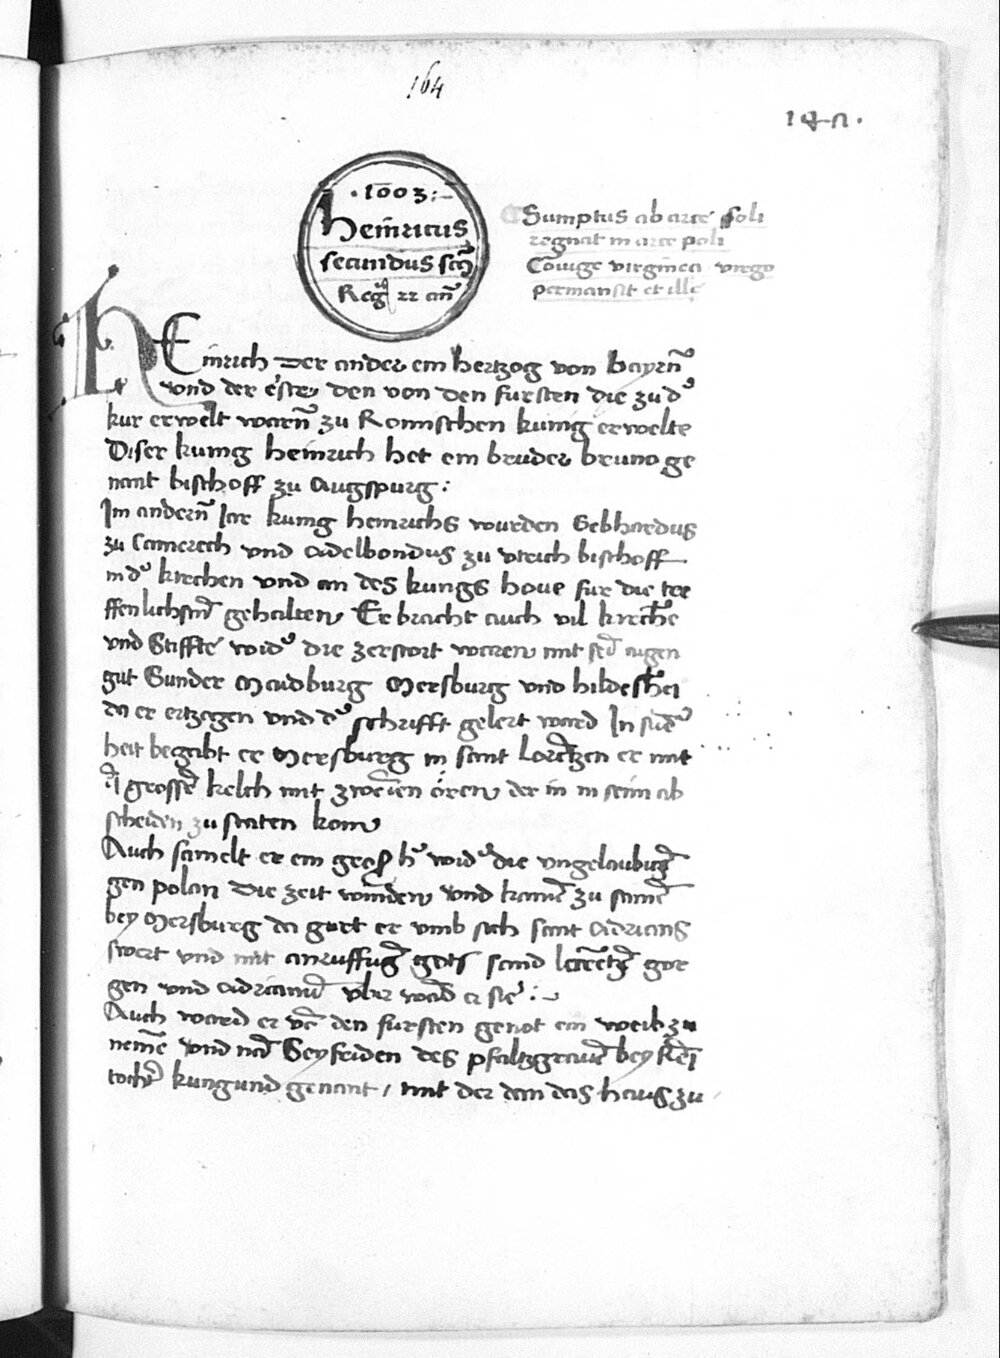 164
· 1003 :~
Heinricus
secundus scūs
Regꝰ xx an̄
Sumptus ab arce soli
regnat in arce poli
Coniuge virginea virgo
permansit et ille
HEinrich der ander ein hertzog von bayrn̄
vnd der erste den von den fursten die zu dˢ
kur erwelt warn̄ zu Romischen kunig erwelte
Diser kunig heinrich het ein bruder bruno ge
nant bischoff zu Augspurg :
Im andern̄ Jar kunig heinrichs wurden Gebhardus
zu Camerech vnd Adelboldus zu vtrich bischoff
in dˢ kirchen vnd an des kungs houe fur die tre
ffenlichsten̄ gehalten Er bracht auch vil kirchē
vnd Stiffte widˢ die zerstort waren mit seī aigen
gut Sunder Maidburg Mersburg vnd hildeshei
da er ertzogen vnd dˢ schrifft gelert ward In
heit begabt er Mersburg in sant Lorētzen er mit
grossē kelch mit zweien oren der in in seim ab
scheiden zu staten kom
Auch samelt er ein groß hˢ widˢ die vngelaubigē
gen polan die zeit winden vnd kamē zu samē
bey Mersburg da gurt er vmb sich sant Adrians
swert vnd mit anruffūg gots sand Larētzē gor
gen vnd Adrianū vber wād er sie :~
Auch ward er vō den fursten genot ein weib zu
nemē vnd nā Seyfriden des pfaltzgrauē bey Rēī
tochtˢ kungund genant / mit der dem das haus zu